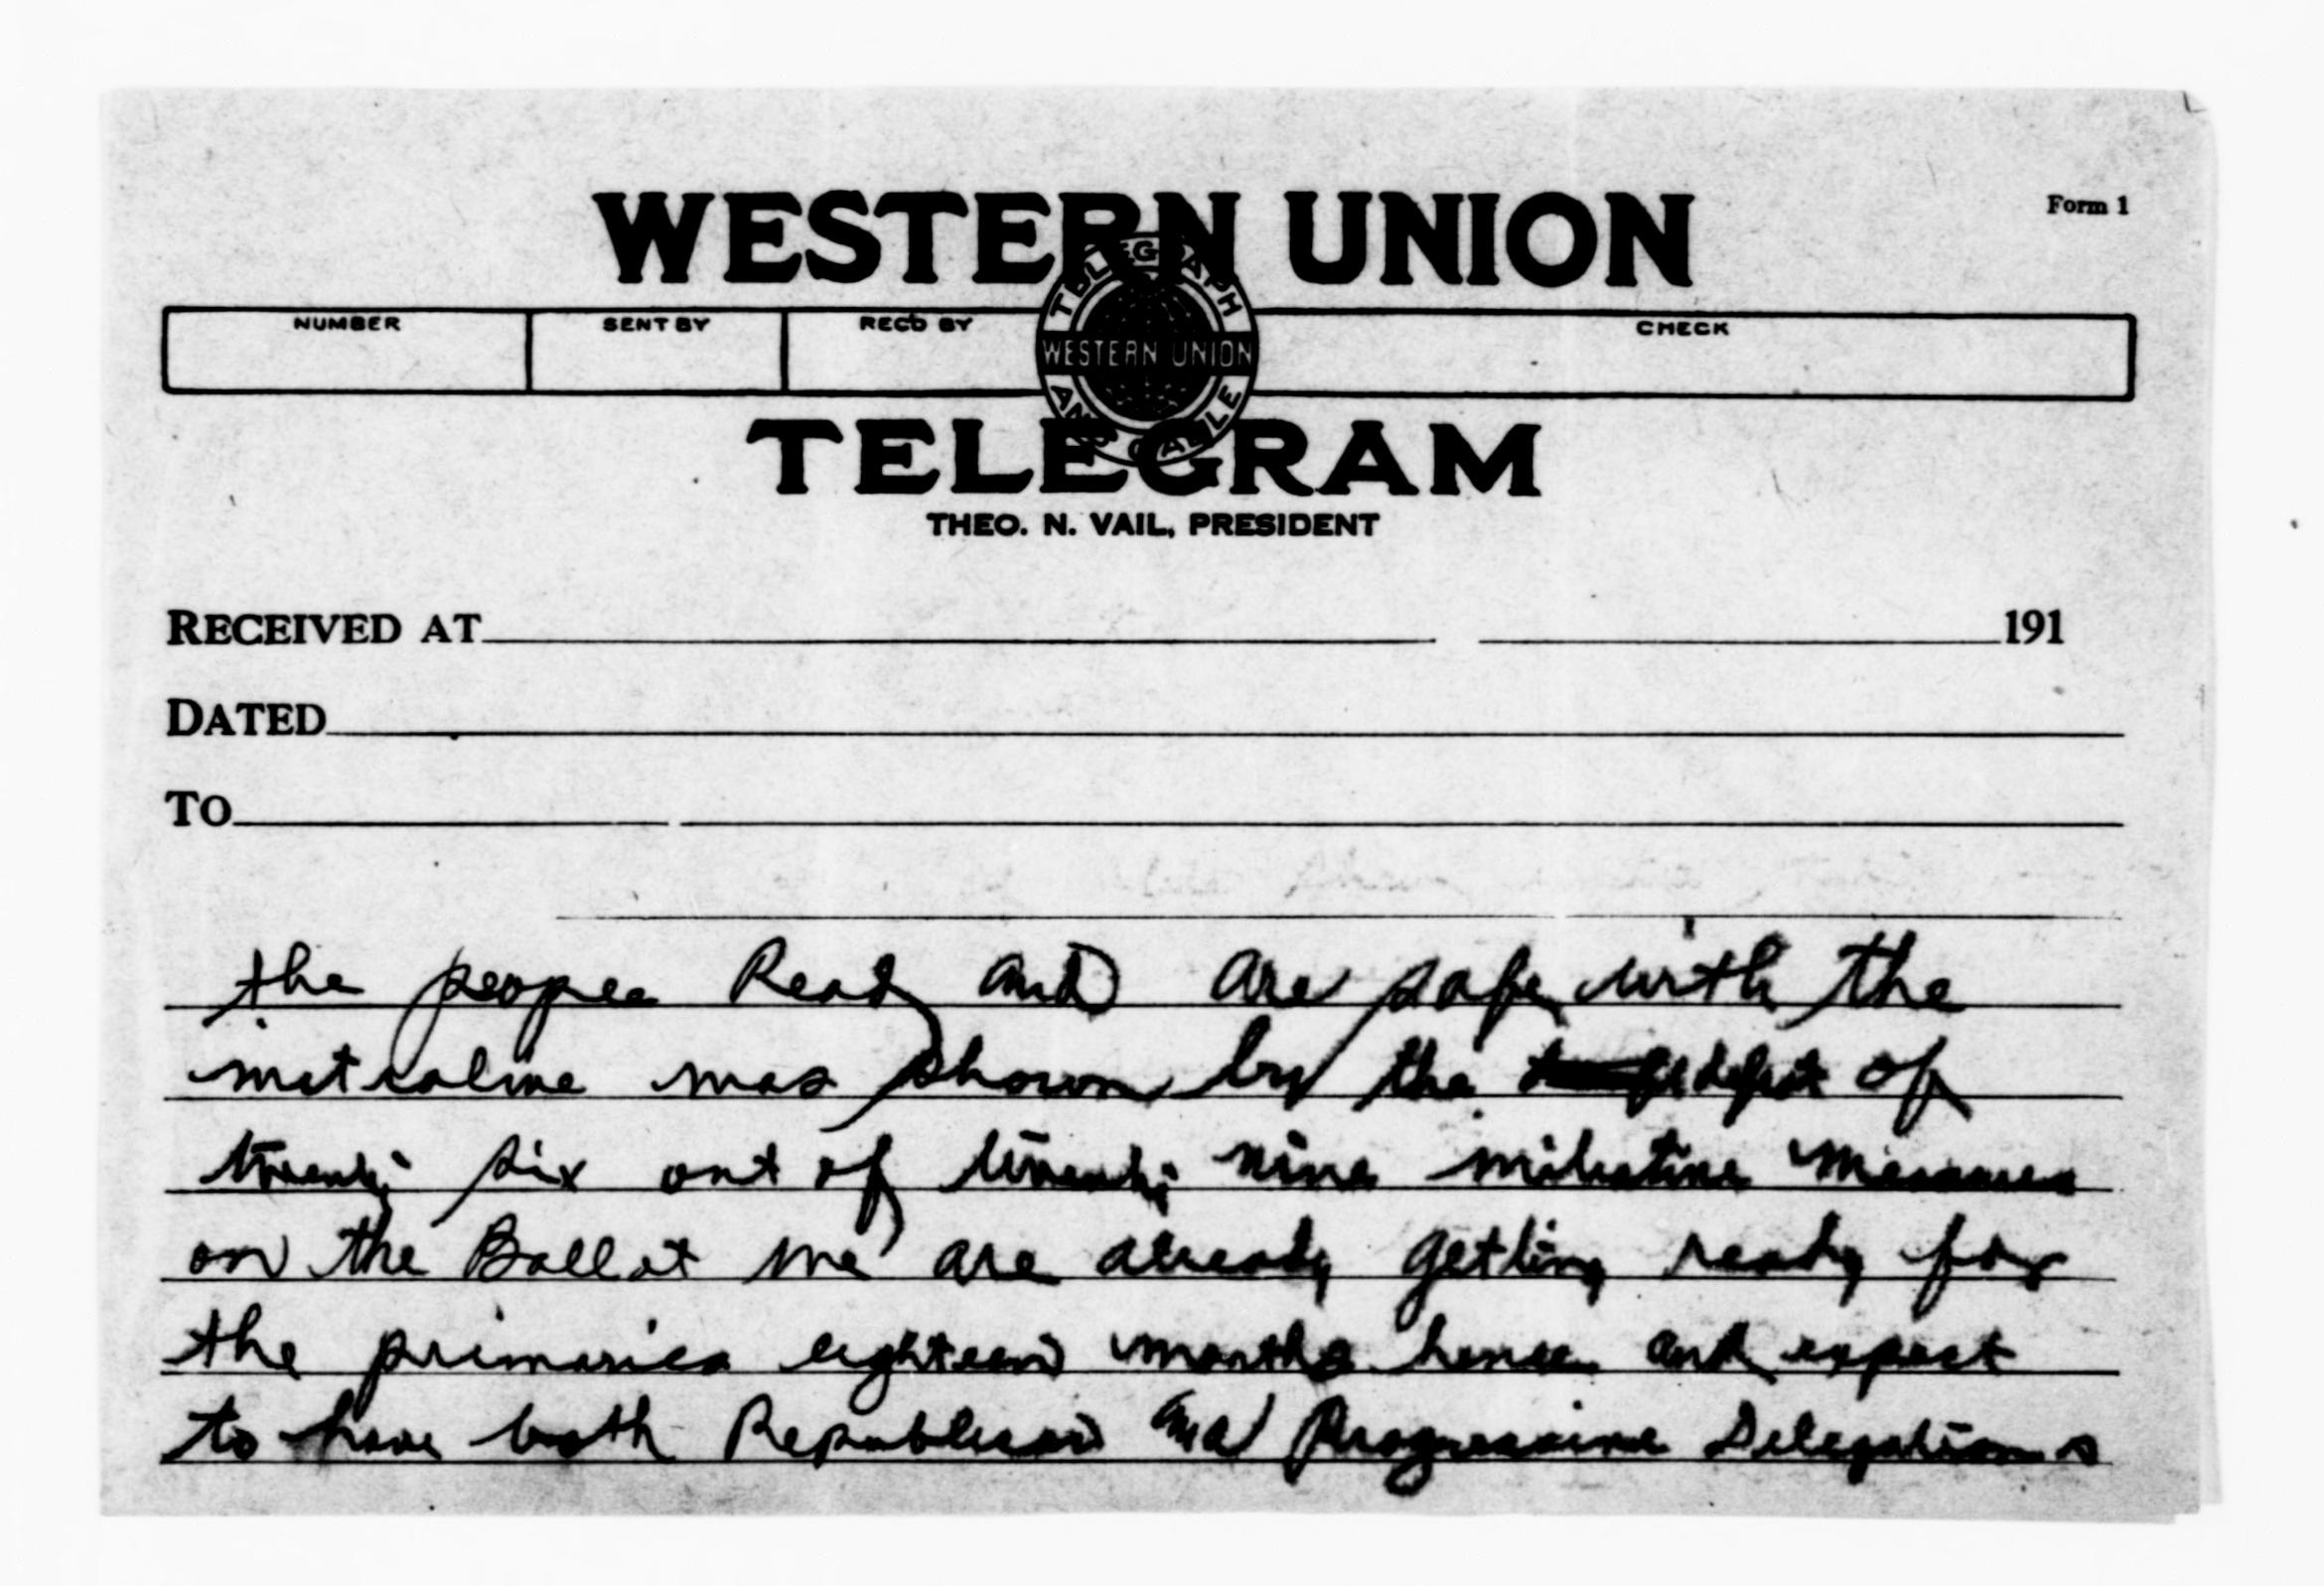 WESTERN UNION
Form 1
NUMBER SENT BY REC'D BY CHECK
TELEGRAPH AND CABLE
WESTERN UNION
TELEGRAM
THEO. N. VAIL, PRESIDENT
RECEIVED AT 191
DATED
TO
the people Read and are safe with the
was shown by the defeat of
twenty six out of twenty nine initiative measures
on the Ballot we are already getting ready for
the primaries eighteen months hence and expect
to have both Republican and Progressive Delegations